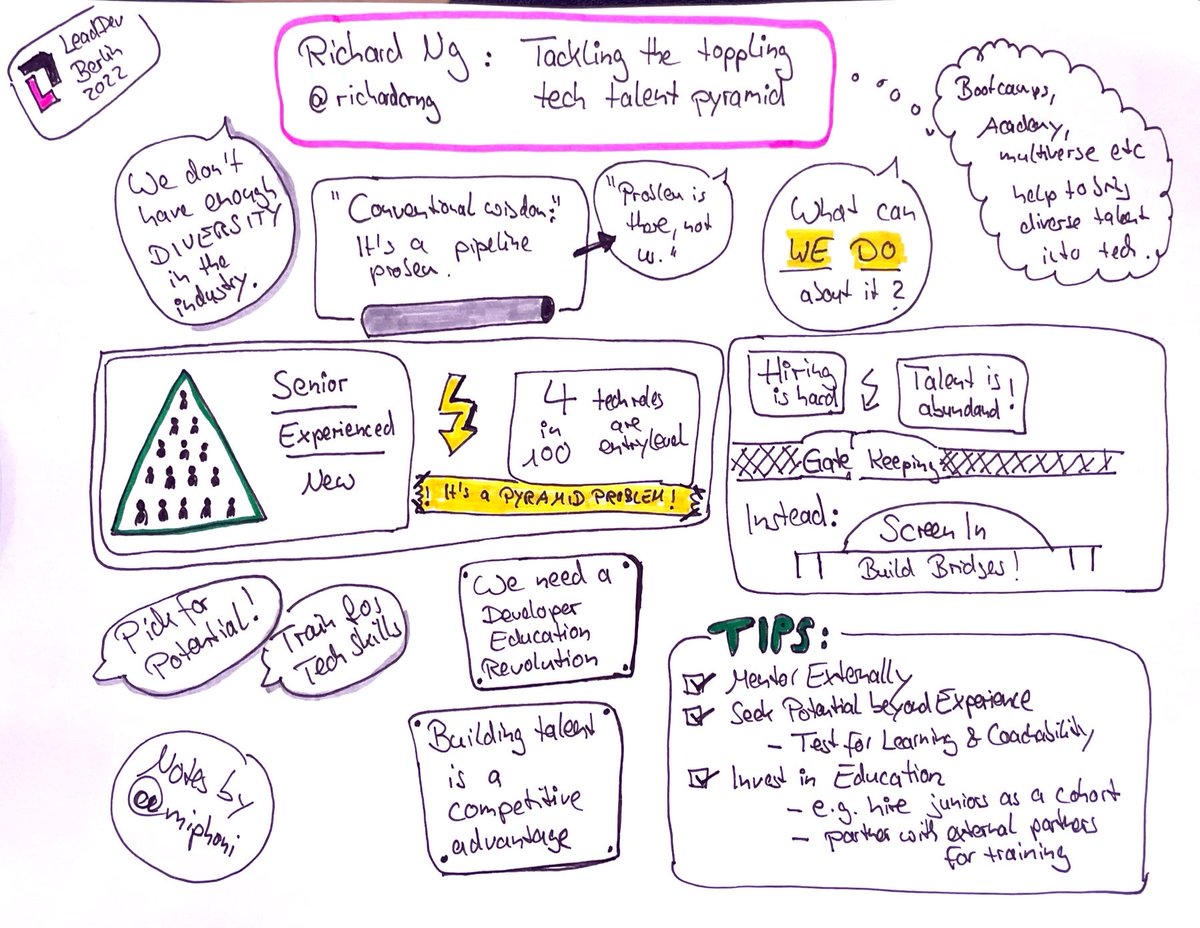 LeadDev
Berlin
2022
Richard Ng : Tackling the toppling
@richardcrng tech talent pyramid
Bootcamps,
Academy,
multiverse etc
help to bring
diverse talent
into tech.
We don't
have enough
DIVERSITY
in the
industry.
"Conventional wisdom:"
It's a pipeline
problem.
"Problem is
there, not
us."
What can
WE DO
about it?
Senior
Experienced
New
4
in
100
tech roles
are
entry level
! It's a PYRAMID PROBLEM!
Hiring
is hard
Talent is
abundand!
Gate Keeping
Instead:
Screen In
Build Bridges!
Pick for
Potential!
Train for
Tech Skills
We need a
Developer
Education
Revolution
Building talent
is a
competitive
advantage
TIPS:
Mentor Externally
Seek Potential beyond Experience
- Test for Learning & Coachability
Invest in Education
- e.g. hire juniors as a cohort
- partner with external partners
for training
Notes by
@miphoni